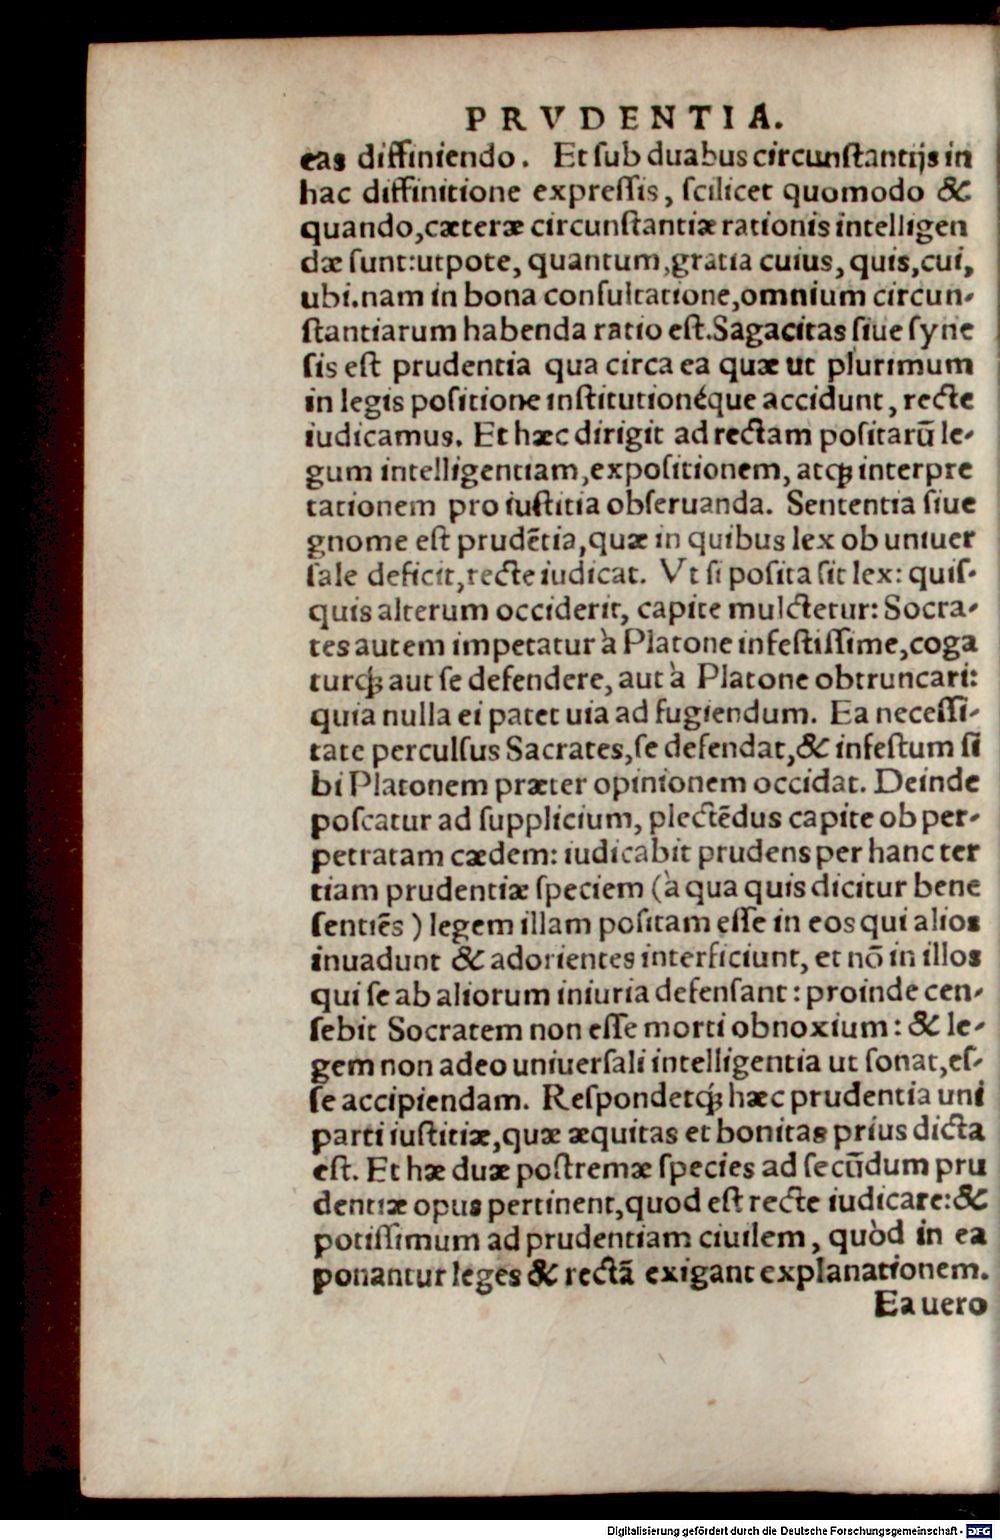 PRVDENTIA.
eas diffiniendo. Et ſub duabus circunſtantijs in
hac diffinitione expreſſis, ſcilicet quomodo &
quando, cæteræ circunſtantiæ rationis intelligen
dæ ſunt: utpote, quantum, gratia cuius, quis, cui,
ubi. nam in bona conſultatione, omnium circun-
ſtantiarum habenda ratio eſt. Sagacitas ſiue ſyne
ſis eſt prudentia qua circa ea quæ ut plurimum
in legis poſitione inſtitutionéque accidunt, recte
iudicamus. Et hæc dirigit ad rectam poſitarū le-
gum intelligentiam, expoſitionem, atqꝫ interpre
tationem pro iuſtitia obſeruanda. Sententia ſiue
gnome eſt prudētia, quæ in quibus lex ob uniuer
ſale deficit, recte iudicat. Vt ſi poſita ſit lex: quiſ-
quis alterum occiderit, capite mulctetur: Socra-
tes autem impetatur à Platone infeſtiſſime, coga
turqꝫ aut ſe defendere, aut à Platone obtruncari:
quia nulla ei patet uia ad fugiendum. Ea neceſſi-
tate perculſus Sacrates, ſe defendat, & infeſtum ſi
bi Platonem præter opinionem occidat. Deinde
poſcatur ad ſupplicium, plectēdus capite ob per-
petratam cædem: iudicabit prudens per hanc ter
tiam prudentiæ ſpeciem (à qua quis dicitur bene
ſentiēs) legem illam poſitam eſſe in eos qui alios
inuadunt & adorientes interficiunt, et nō in illos
qui ſe ab aliorum iniuria defenſant: proinde cen-
ſebit Socratem non eſſe morti obnoxium: & le-
gem non adeo uniuerſali intelligentia ut ſonat, eſ-
ſe accipiendam. Reſpondetqꝫ hæc prudentia uni
parti iuſtitiæ, quæ æquitas et bonitas prius dicta
eſt. Et hæ duæ poſtremæ ſpecies ad ſecūdum pru
dentiæ opus pertinent, quod eſt recte iudicare: &
potiſſimum ad prudentiam ciuilem, quòd in ea
ponantur leges & rectā exigant explanationem.
Ea uero
Digitalisierung gefördert durch die Deutsche Forschungsgemeinschaft - DFG